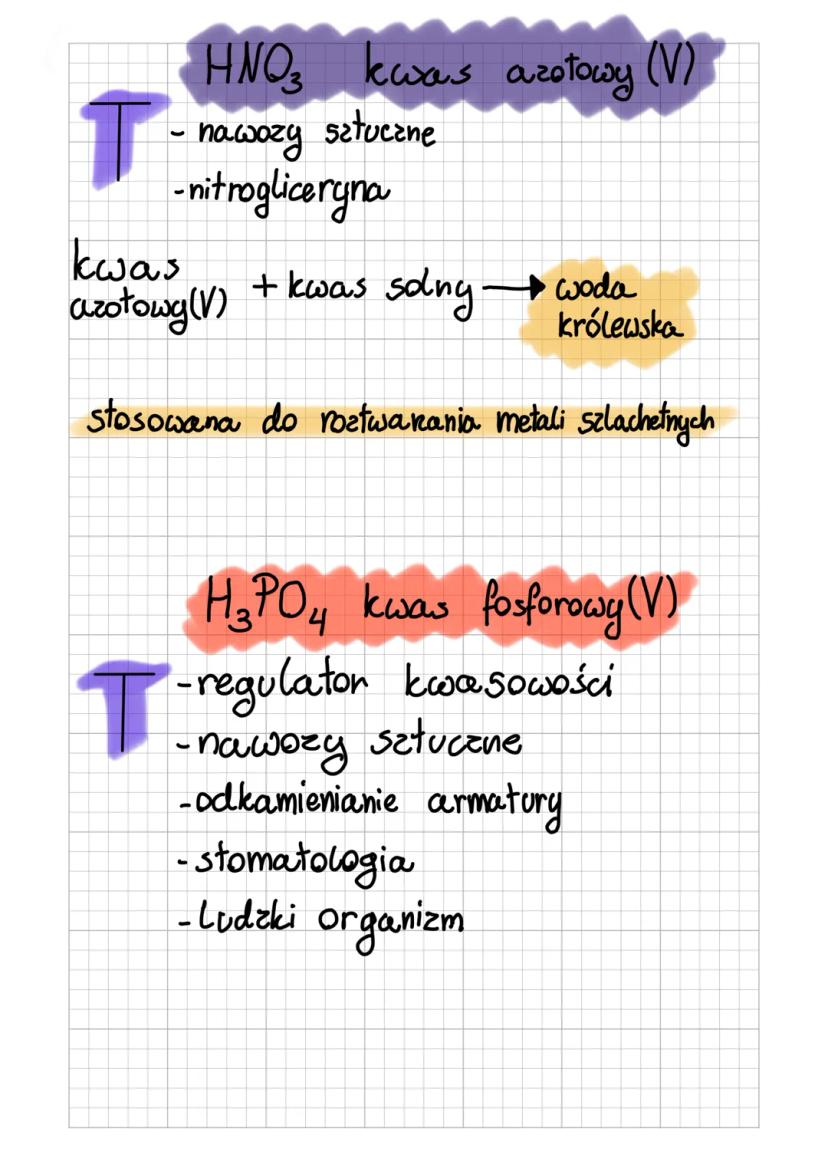 HNO₃ kwas azotowy (V)
T
- nawozy sztuczne
-nitrogliceryna
kwas
azotowy(V) + kwas solny → woda
królewska
stosowana do roztwarzania metali szlachetnych
H₃PO₄ kwas fosforowy(V)
T
-regulator kwasowości
-nawozy sztuczne
-odkamienianie armatury
-stomatologia
-Ludzki organizm